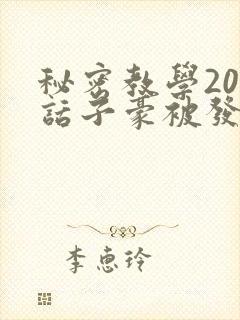 秘密教學20
話子豪被發
李惠玲